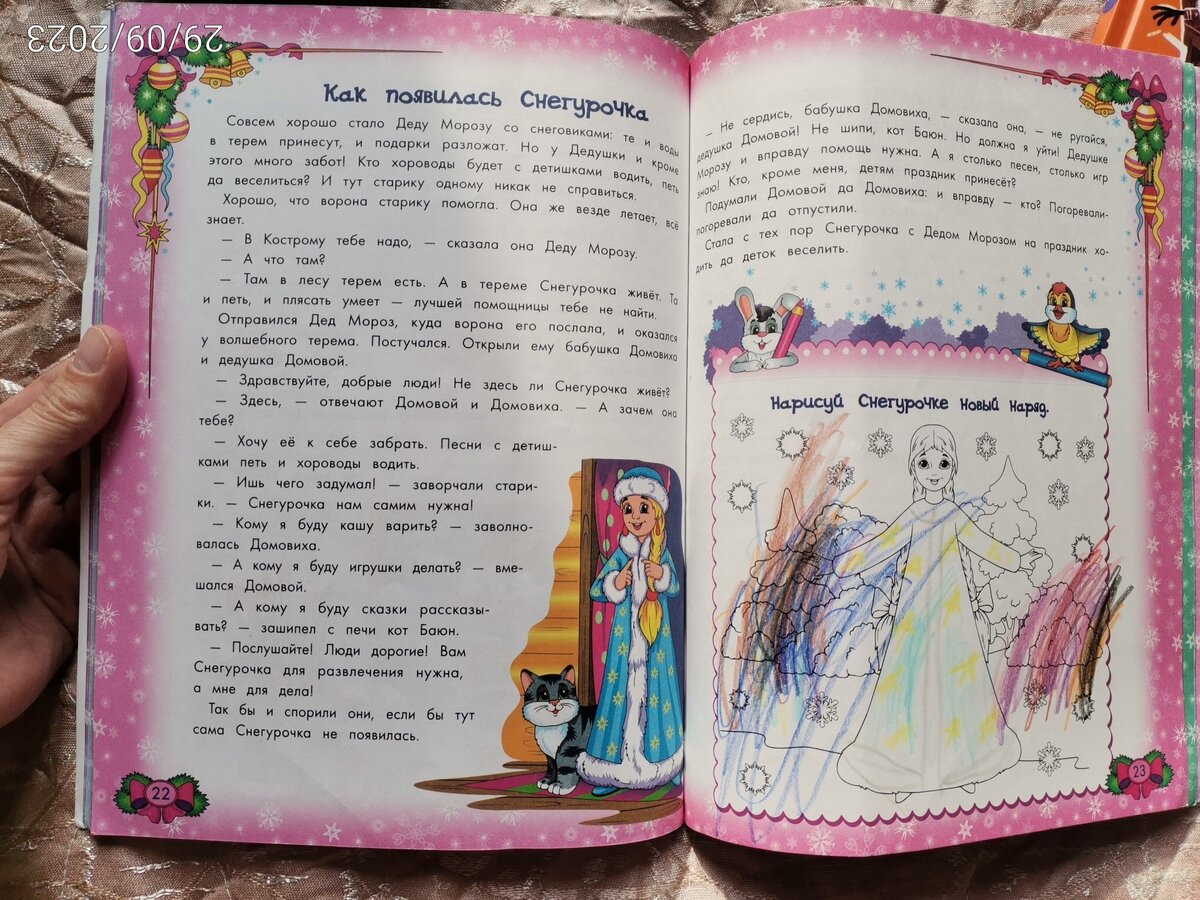 29/09/2023
Как появилась Снегурочка
Совсем хорошо стало Деду Морозу со снеговиками: те и воды
в терем принесут, и подарки разложат. Но у Дедушки и кроме
этого много забот! Кто хороводы будет с детишками водить, петь
да веселиться? И тут старику одному никак не справиться.
Хорошо, что ворона старику помогла. Она же везде летает, всё
знает.
— В Кострому тебе надо, — сказала она Деду Морозу.
— А что там?
— Там в лесу терем есть. А в тереме Снегурочка живёт. Та
и петь, и плясать умеет — лучшей помощницы тебе не найти.
Отправился Дед Мороз, куда ворона его послала, и оказался
у волшебного терема. Постучался. Открыли ему бабушка Домовиха
и дедушка Домовой.
— Здравствуйте, добрые люди! Не здесь ли Снегурочка живёт?
— Здесь, — отвечают Домовой и Домовиха. — А зачем она
тебе?
— Хочу её к себе забрать. Песни с детиш-
ками петь и хороводы водить.
— Ишь чего задумал! — заворчали стари-
ки. — Снегурочка нам самим нужна!
— Кому я буду кашу варить? — заволно-
валась Домовиха.
— А кому я буду игрушки делать? — вме-
шался Домовой.
— А кому я буду сказки рассказы-
вать? — зашипел с печи кот Баюн.
— Послушайте! Люди дорогие! Вам
Снегурочка для развлечения нужна,
а мне для дела!
Так бы и спорили они, если бы тут
сама Снегурочка не появилась.
22
— Не сердись, бабушка Домовиха, — сказала она, — не ругайся,
дедушка Домовой! Не шипи, кот Баюн. Но должна я уйти! Дедушке
Морозу и вправду помощь нужна. А я столько песен, столько игр
знаю! Кто, кроме меня, детям праздник принесёт?
Подумали Домовой да Домовиха: и вправду — кто? Погоревали-
погоревали да отпустили.
Стала с тех пор Снегурочка с Дедом Морозом на праздник хо-
дить да деток веселить.
Нарисуй Снегурочке новый наряд.
23